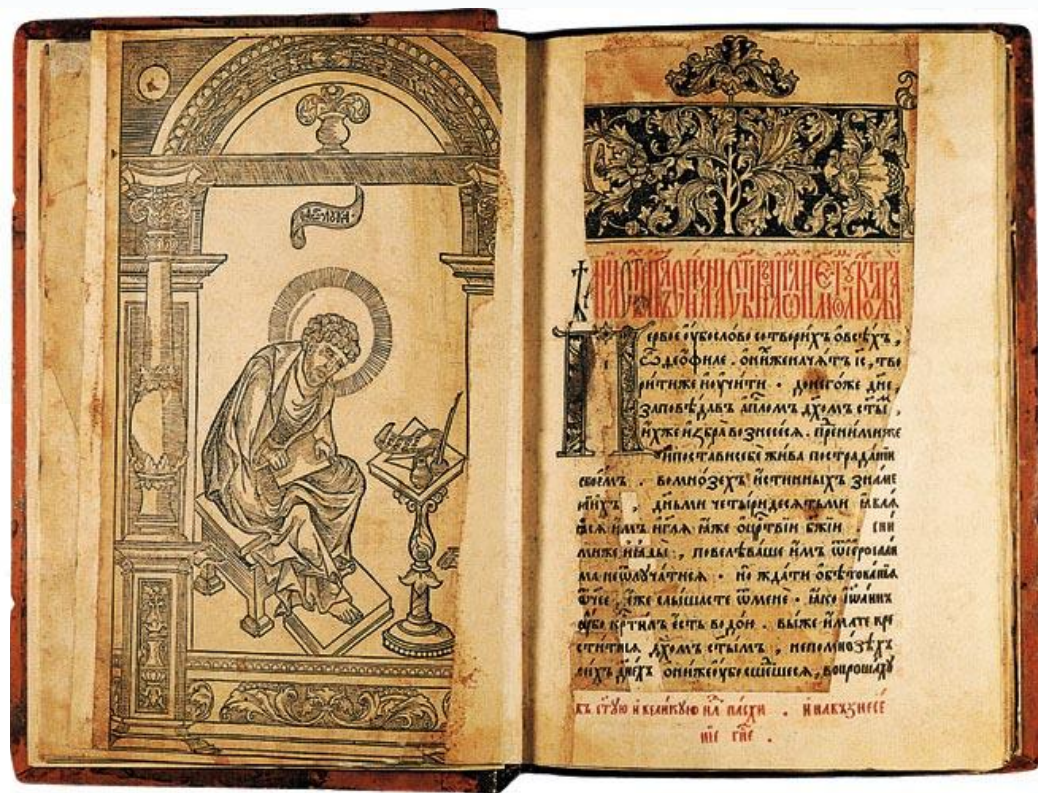 лꙋка
Первое ᲂу҆бо слово сотворихъ ѡ҆ всѣхъ,
ѽ ѳеѡ҆филе. ѡ҆ ниⷯже начатъ і҆с҃, тво
рити же и҆ ᲂу҆чити. до него же дн҃е
заповѣдавъ а҆пⷭ҇ломъ дх҃омъ ст҃ы,
и҆хже и҆збра вознесесѧ. пред ними же
и҆ постави себе жива по страданїи
своемъ. во мнозехъ и҆стинныхъ зна́ме
нїихъ, дньми четыридесѧтьми ꙗ҆влѧ
ꙗ҆сѧ и҆мъ и҆ гл҃ѧ ꙗ҆же ѡ҆ црⷭ҇твїи бж҃їи. с ни
ми же и҆ ꙗ҆ды, повелѣваше и҆мъ ѿ і҆еросали
ма не ѿлꙋчатисѧ. но ждати ѡ҆бѣтованїа
ѿчее, е҆же слышасте ѿ мене. ꙗ҆ко і҆ѡ҆аннъ
ᲂу҆бо крⷭ҇тилъ є҆сть водою. вы же и҆мате кре
ститисѧ дх҃омъ ст҃ымъ, не по мноѕѣхъ
сихъ дн҃ехъ. ѡ҆ни же ᲂу҆бо сшедшесѧ, вопрошахꙋ
въ ст҃ꙋю и҆ великꙋю нлⷧ҇ѧ пасхи. и҆ на възнесе
нїе гн҃е.